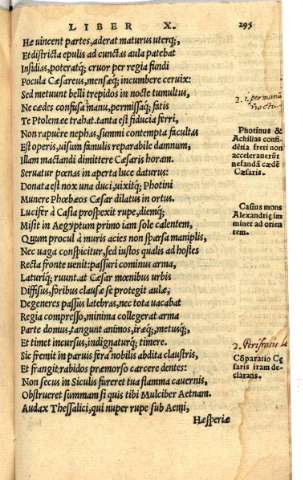 LIBER X. 295
Hæ uincent partes, aderat maturus uterq;,
Et districta epulis ad cunctas aula patebat
Insidias, poteratq; cruor per regia fundi
Pocula Cæsareus, mensæq; incumbere ceruix:
Sed metuunt belli trepidos in nocte tumultus,
Ne cædes confusa manu, permissaq; fatis
Te Ptolemæe trahat. tanta est fiducia ferri,
Non rapuêre nephas, summi contempta facultas
Est operis, uisum famulis reparabile damnum,
Illam mactandi dimittere Cæsaris horam.
Seruatur pœnas in aperta luce daturus:
Donata est nox una duci, uixitq; Photini
Munere Phœbæos Cæsar dilatus in ortus.
Lucifer à Casia prospexit rupe, diemq;
Misit in Aegyptum primo iam sole calentem,
Quum procul à muris acies non sparsa maniplis,
Nec uaga conspicitur, sed iustos qualis ad hostes
Recta fronte uenit: passuri cominus arma,
Laturiq; ruunt. at Cæsar mœnibus urbis
Diffisus, foribus clausæ se protegit aulæ,
Degeneres passus latebras, nec tota uacabat
Regia compresso, minima collegerat arma
Parte domus, tangunt animos, iræq;, metusq;,
Et timet incursus, indignaturq; timere.
Sic fremit in paruis fera nobilis abdita claustris,
Et frangit rabidos præmorso carcere dentes:
Non secus in Siculis fureret tua flamma cauernis,
Obstrueret summam si quis tibi Mulciber Aetnam.
Audax Thessalici, qui nuper rupe sub Aemi,
Hæsperiæ
Photinus &
Achillas confi-
dẽtia freti non
accelerarũt
nefandã cædẽ
Cæsaris.
Casius mons
Alexandriæ im
minet ad orien
tem.
Cõparatio Cæ
saris iram de-
clarans.